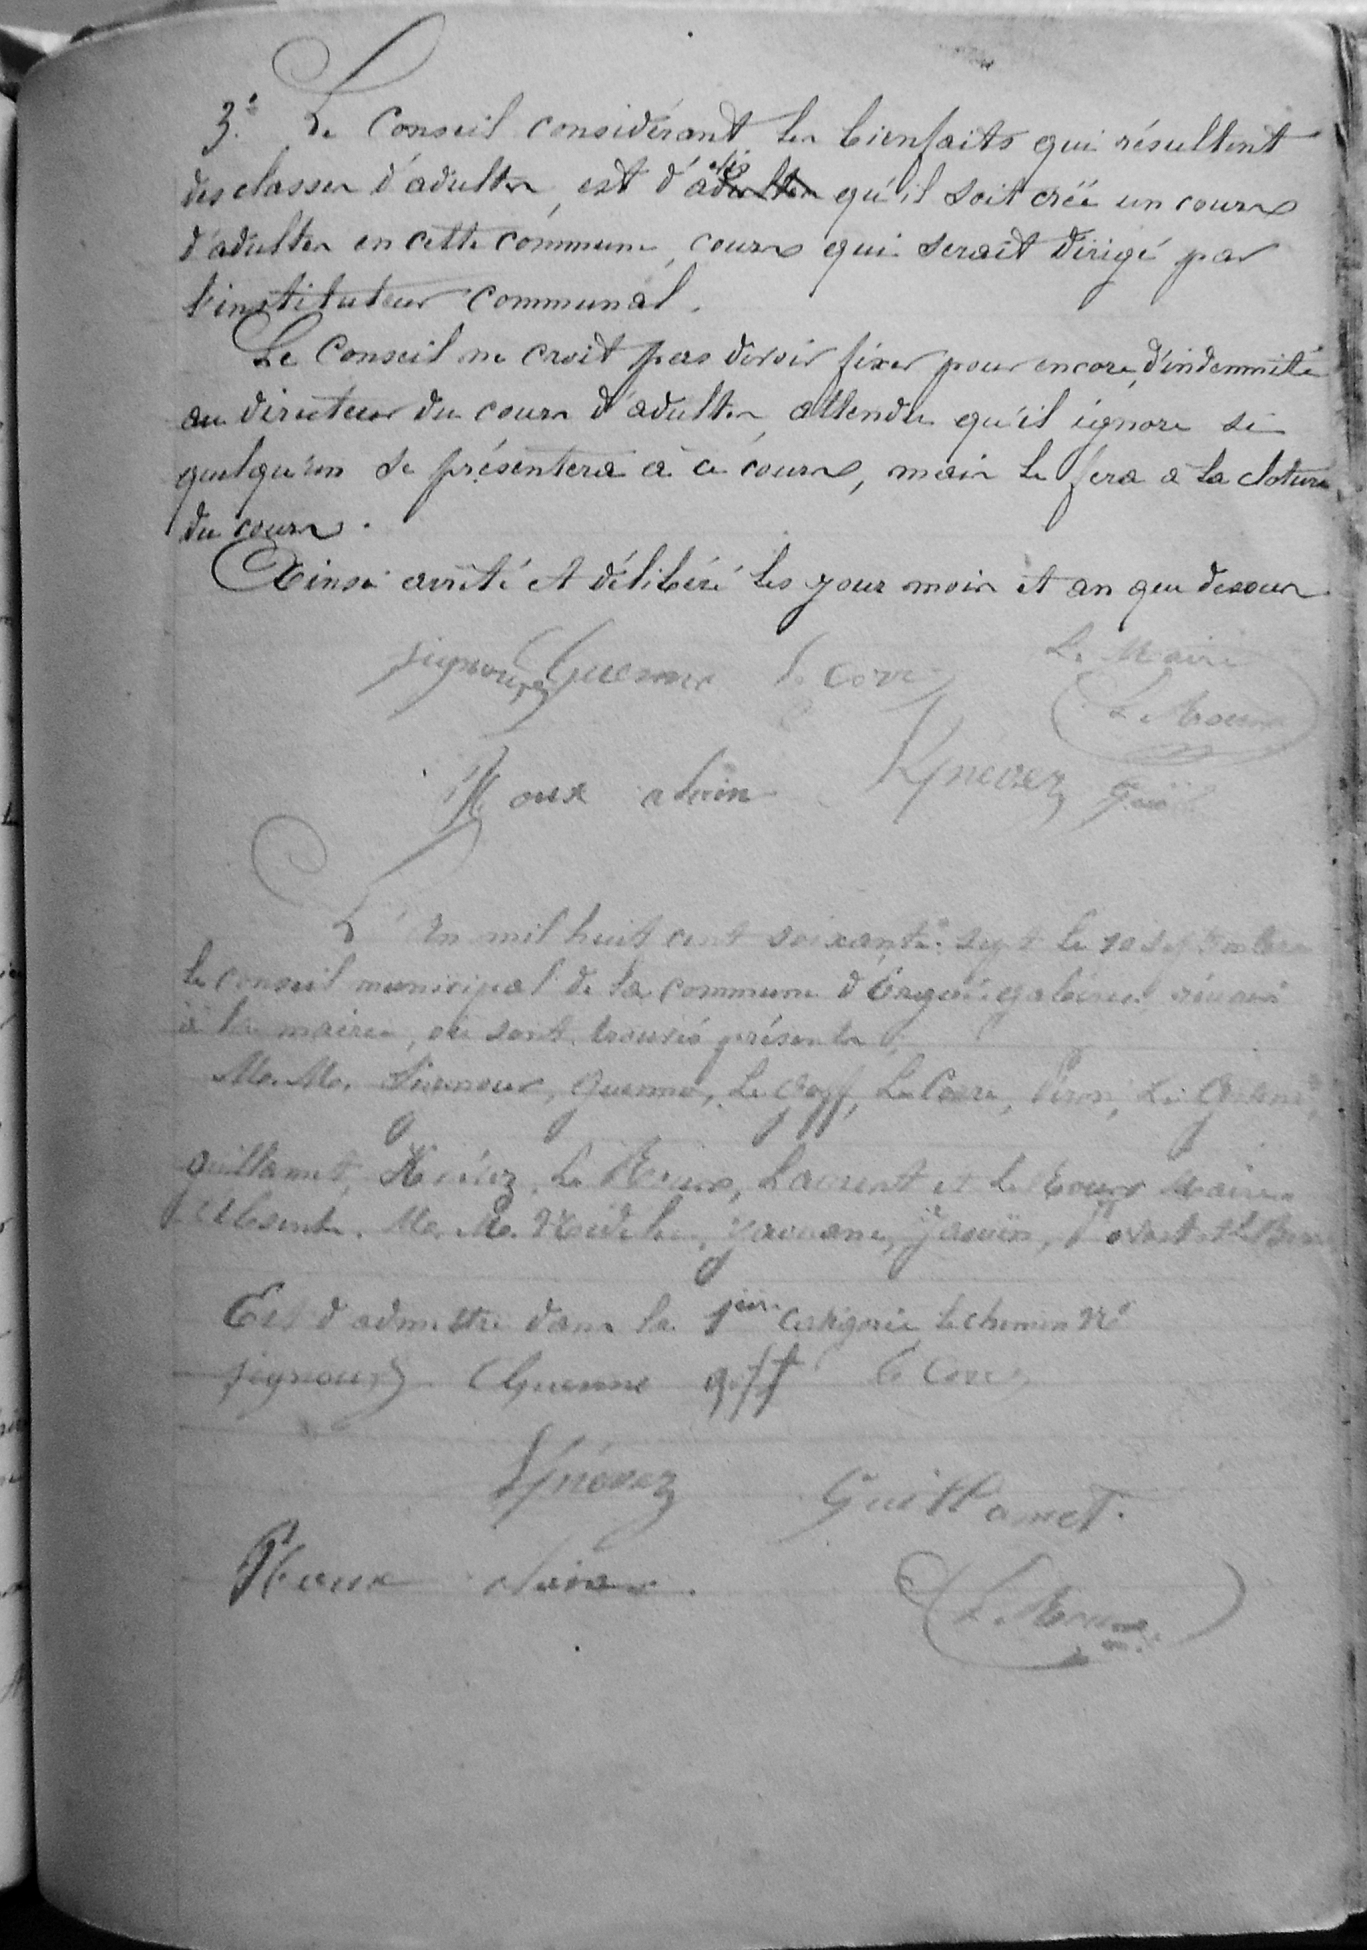 3.° Le Conseil considérant les bienfaits qui résultent
des classes d'adultes, est d'avis qu'il soit créé un cours
d'adultes en cette commune, cours qui serait dirigé par
l'instituteur communal.
Le Conseil ne croit pas devoir fixer pour encore, d'indemnité
au directeur du cours d'adultes, attendu qu'il ignore si
quelqu'un se présentera à ce cours, mais le fera à la cloture
du cours.
Ainsi arrêté et délibéré les jour mois et an que dessus.
Le Maire
signour Guenne le Corre
Roux alain
L'An mil huit cent soixante-sept le 10 septembre
le conseil municipal de la commune d'Ergué-gabéric, réuni
à la mairie, où sont trouvés présents
Me. Me. Guenne, Le Goff, Le Corre,
Guillamet, Laurent et Maire
Absents. Me. Me.
Est d'admettre dans la 1ière catégorie le chemin N°
signour Guenne goff le Corre
Guillamet.
Roux alain